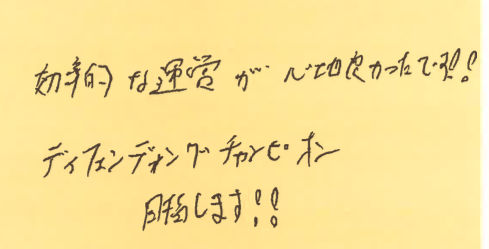 効率的な運営が心地良かったです!!
ディフェンディングチャンピオン
目指します!!